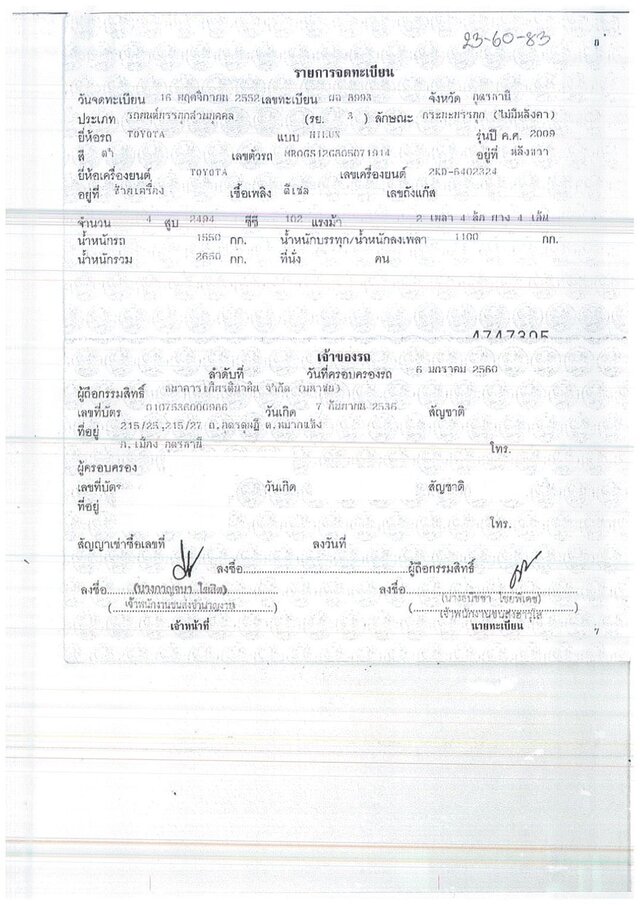 23-60-83
8
รายการจดทะเบียน
วันจดทะเบียน 16 พฤศจิกายน 2552 เลขทะเบียน ผอ 8993 จังหวัด อุดรธานี
ประเภท รถยนต์บรรทุกส่วนบุคคล (รย. 3 ) ลักษณะ กระบะบรรทุก (ไม่มีหลังคา)
ยี่ห้อรถ TOYOTA แบบ HILUX รุ่นปี ค.ศ. 2009
สี ดำ เลขตัวรถ MROGS12G805071914 อยู่ที่ หลังขวา
ยี่ห้อเครื่องยนต์ TOYOTA เลขเครื่องยนต์ 2KD-6402324
อยู่ที่ ซ้ายเครื่อง เชื้อเพลิง ดีเซล เลขถังแก๊ส
จำนวน 4 สูบ 2494 ซีซี 102 แรงม้า 2 เพลา 4 ล้อ ยาง 4 เส้น
น้ำหนักรถ 1550 กก. น้ำหนักบรรทุก/น้ำหนักลงเพลา 1100 กก.
น้ำหนักรวม 2650 กก. ที่นั่ง คน
4747395
เจ้าของรถ
ลำดับที่ วันที่ครอบครองรถ 6 มกราคม 2560
ผู้ถือกรรมสิทธิ์ ธนาคารเกียรตินาคิน จำกัด (มหาชน)
เลขที่บัตร 0107536000986 วันเกิด 7 กันยายน 2536 สัญชาติ
ที่อยู่ 215/25,215/27 ถ.อุดรดุษฎี ต.หมากแข้ง
อ.เมือง อุดรธานี โทร.
ผู้ครอบครอง
เลขที่บัตร วันเกิด สัญชาติ
ที่อยู่
โทร.
สัญญาเช่าซื้อเลขที่ ลงวันที่
ลงชื่อ ผู้ถือกรรมสิทธิ์
ลงชื่อ (นางกาญจนา ) ลงชื่อ
(เจ้าพนักงานขนส่งชำนาญงาน) (เจ้าพนักงานขนส่งอาวุโส)
เจ้าหน้าที่ นายทะเบียน
7